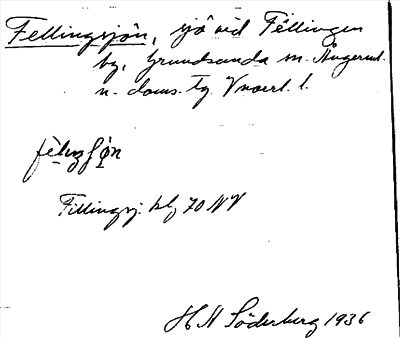 Fellingsjön, sjö vid Fellingen
by, Grundsunda sn. Ångerml.
n. doms. tg. Vnorrl. l.
Fillingsj. bl 70 NV
H H Söderberg 1936